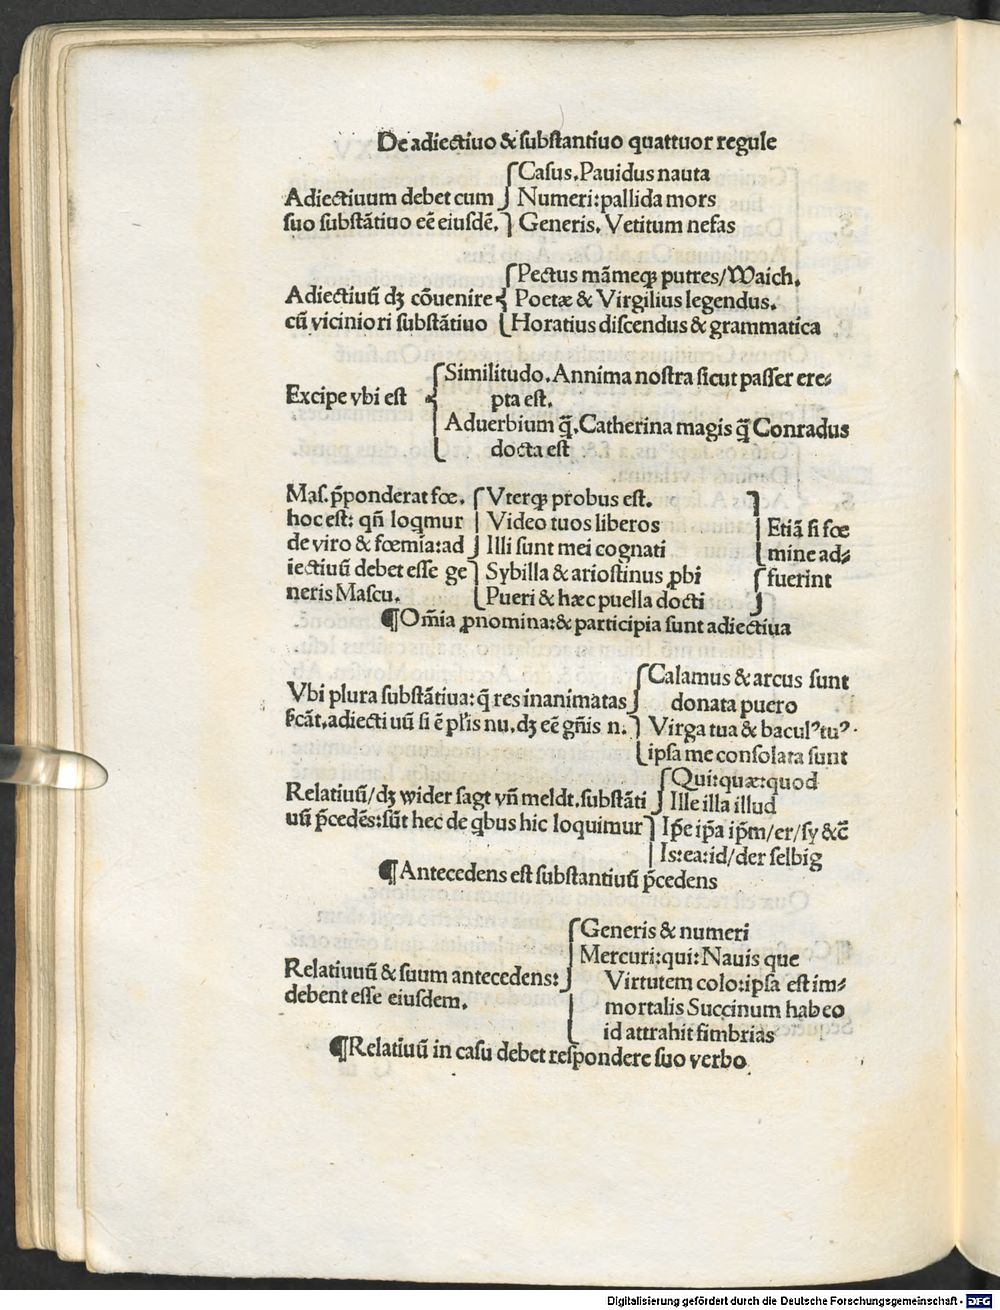 De adiectiuo & substantiuo quattuor regule
Adiectiuum debet cum
suo substãtiuo eẽ eiusdẽ.
Casus. Pauidus nauta
Numeri: pallida mors
Generis. Vetitum nefas
Adiectiuũ dꝫ cõuenire
cũ viciniori substãtiuo
Pectus mãmeqꝫ putres/Waich.
Poetæ & Virgilius legendus.
Horatius discendus & grammatica
Excipe vbi est
Similitudo. Annima nostra sicut passer ere⸗
pta est.
Aduerbium q̃. Catherina magis q̃ Conradus
docta est
Mas. p̃ponderat fœ.
hoc est: qñ loqmur
de viro & fœmia: ad
iectiuũ debet esse ge
neris Mascu.
Vterqꝫ probus est.
Video tuos liberos
Illi sunt mei cognati
Sybilla & ariostinus ꝓbi
Pueri & hæc puella docti
Etiã si fœ
mine ad⸗
fuerint
¶Om̃ia ꝓnomina: & participia sunt adiectiua
Vbi plura substãtiua: q̃ res inanimatas
adiectiuũ si ẽ pl̃is nu. dꝫ eẽ gñis n.
Calamus & arcus sunt
donata puero
Virga tua & baculꝰ tuꝰ.
ipsa me consolata sunt
Relatiuũ/dꝫ wider sagt vñ meldt. substãti
uũ p̃cedẽs: sũt hec de qbus hic loquimur
Qui: quæ: quod
Ille illa illud
Ip̃e ip̃a ip̃m/er/sy &c̃
Is: ea: id/der selbig
¶Antecedens est substantiuũ p̃cedens
Relatiuuũ & suum antecedens:
debent esse eiusdem.
Generis & numeri
Mercuri: qui: Nauis que
Virtutem colo: ipsa est im⸗
mortalis Succinum habeo
id attrahit fimbrias
¶Relatiuũ in casu debet respondere suo verbo
Digitalisierung gefördert durch die Deutsche Forschungsgemeinschaft - DFG